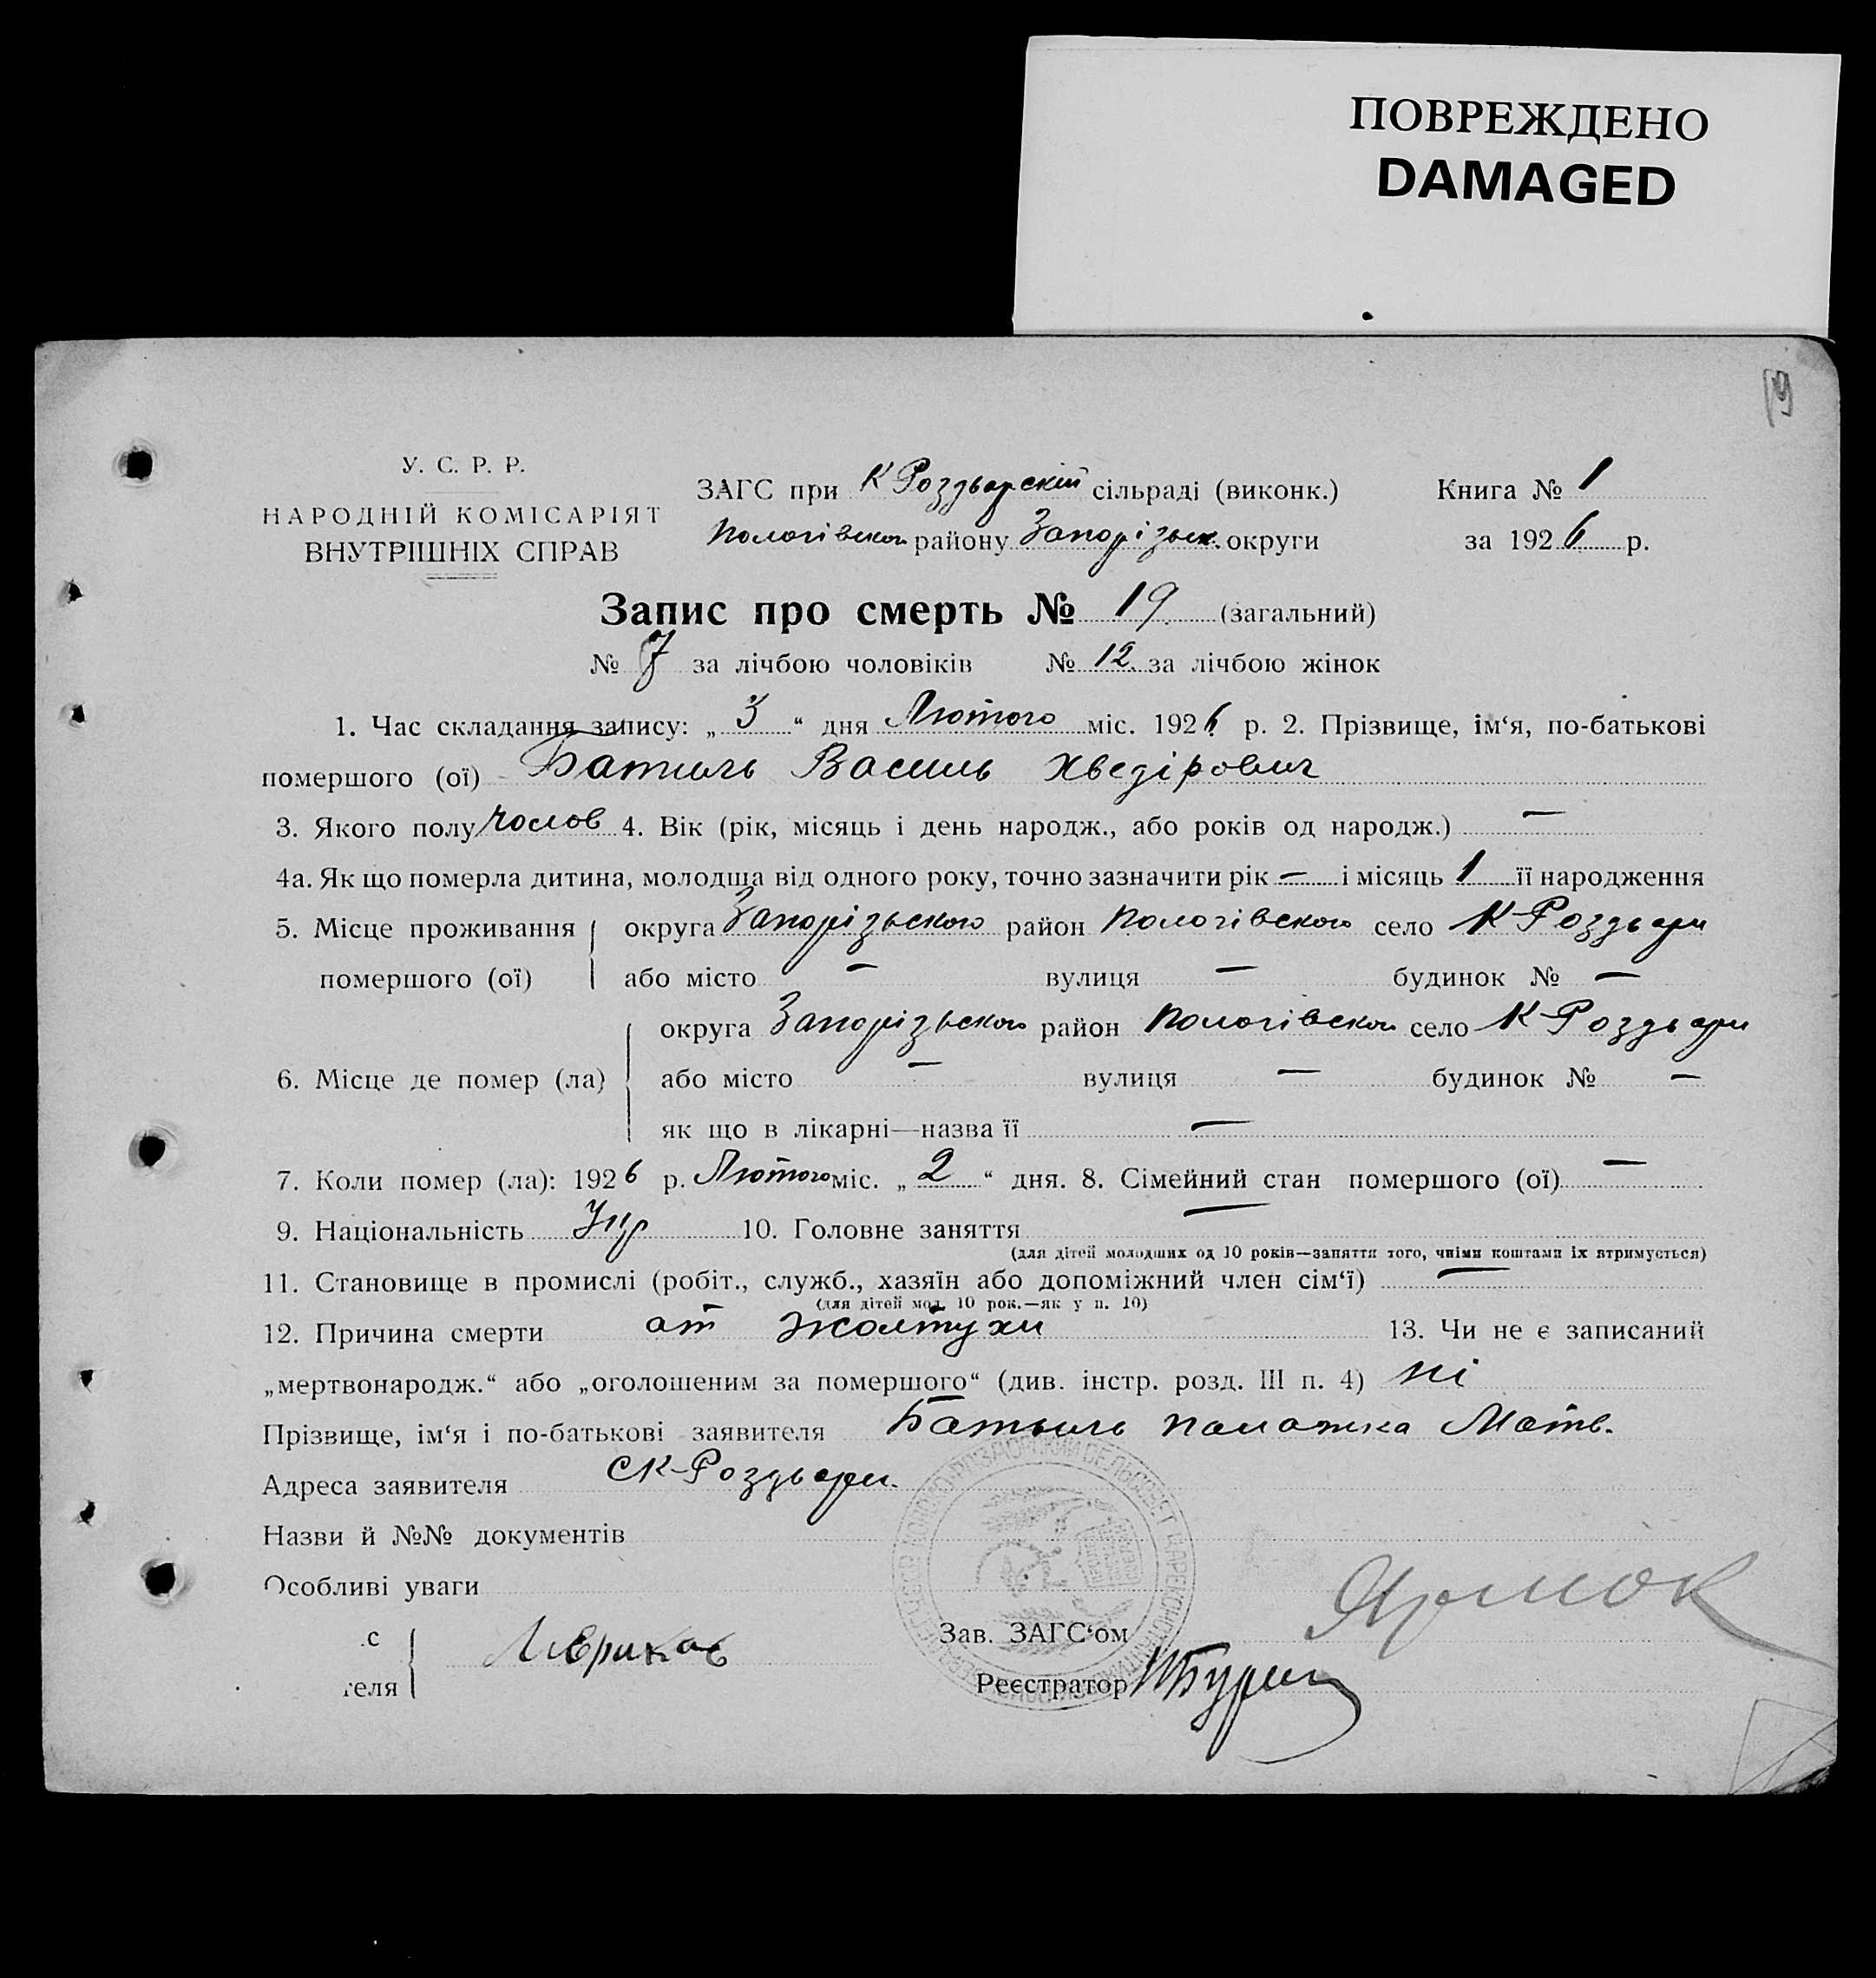 ПОВРЕЖДЕНО
DAMAGED
19
У. С. Р. Р.
НАРОДНІЙ КОМІСАРІЯТ
ВНУТРІШНІХ СПРАВ
ЗАГС при К Роздорскій сільраді (виконк.) Книга № 1
Пологівского району Запорізьк. округи за 1926 р.
Запис про смерть № 19 (загальний)
№ 7 за лічбою чоловіків № 12. за лічбою жінок
1. Час складання запису: „ 3 “ дня Лютого міс. 1926 р. 2. Прізвище, ім‘я, по-батькові
помершого (ої) Батиль Василь Хведірович
3. Якого полу чолов 4. Вік (рік, місяць і день народж., або років од народж.) —
4а. Як що померла дитина, молодша від одного року, точно зазначити рік — і місяць 1 її народження
5. Місце проживання помершого (ої) округа Запорізьского район Пологівского село К-Роздьори
або місто — вулиця — будинок № —
округа Запорізьского район Пологівского село К-Роздьори
6. Місце де помер (ла) або місто — вулиця — будинок № —
як що в лікарні—назва її —
7. Коли помер (ла): 1926 р. Лютого міс. „ 2 “ дня. 8. Сімейний стан помершого (ої) —
9. Національність Укр 10. Головне заняття —
(для дітей молодших од 10 років—заняття того, чиїми коштами їх втримується)
11. Становище в промислі (робіт., служб., хазяїн або допоміжний член сім‘ї) —
(для дітей мол. 10 рок.—як у п. 10)
12. Причина смерти от жолтухи 13. Чи не є записаний
„мертвонародж.“ або „оголошеним за помершого“ (див. інстр. розд. III п. 4) ні
Прізвище, ім‘я і по-батькові заявителя Батыль Палажка Матв.
Адреса заявителя С К-Роздьори.
Назви й №№ документів
Особливі уваги
с
теля
Зав. ЗАГС‘ом
Реєстратор